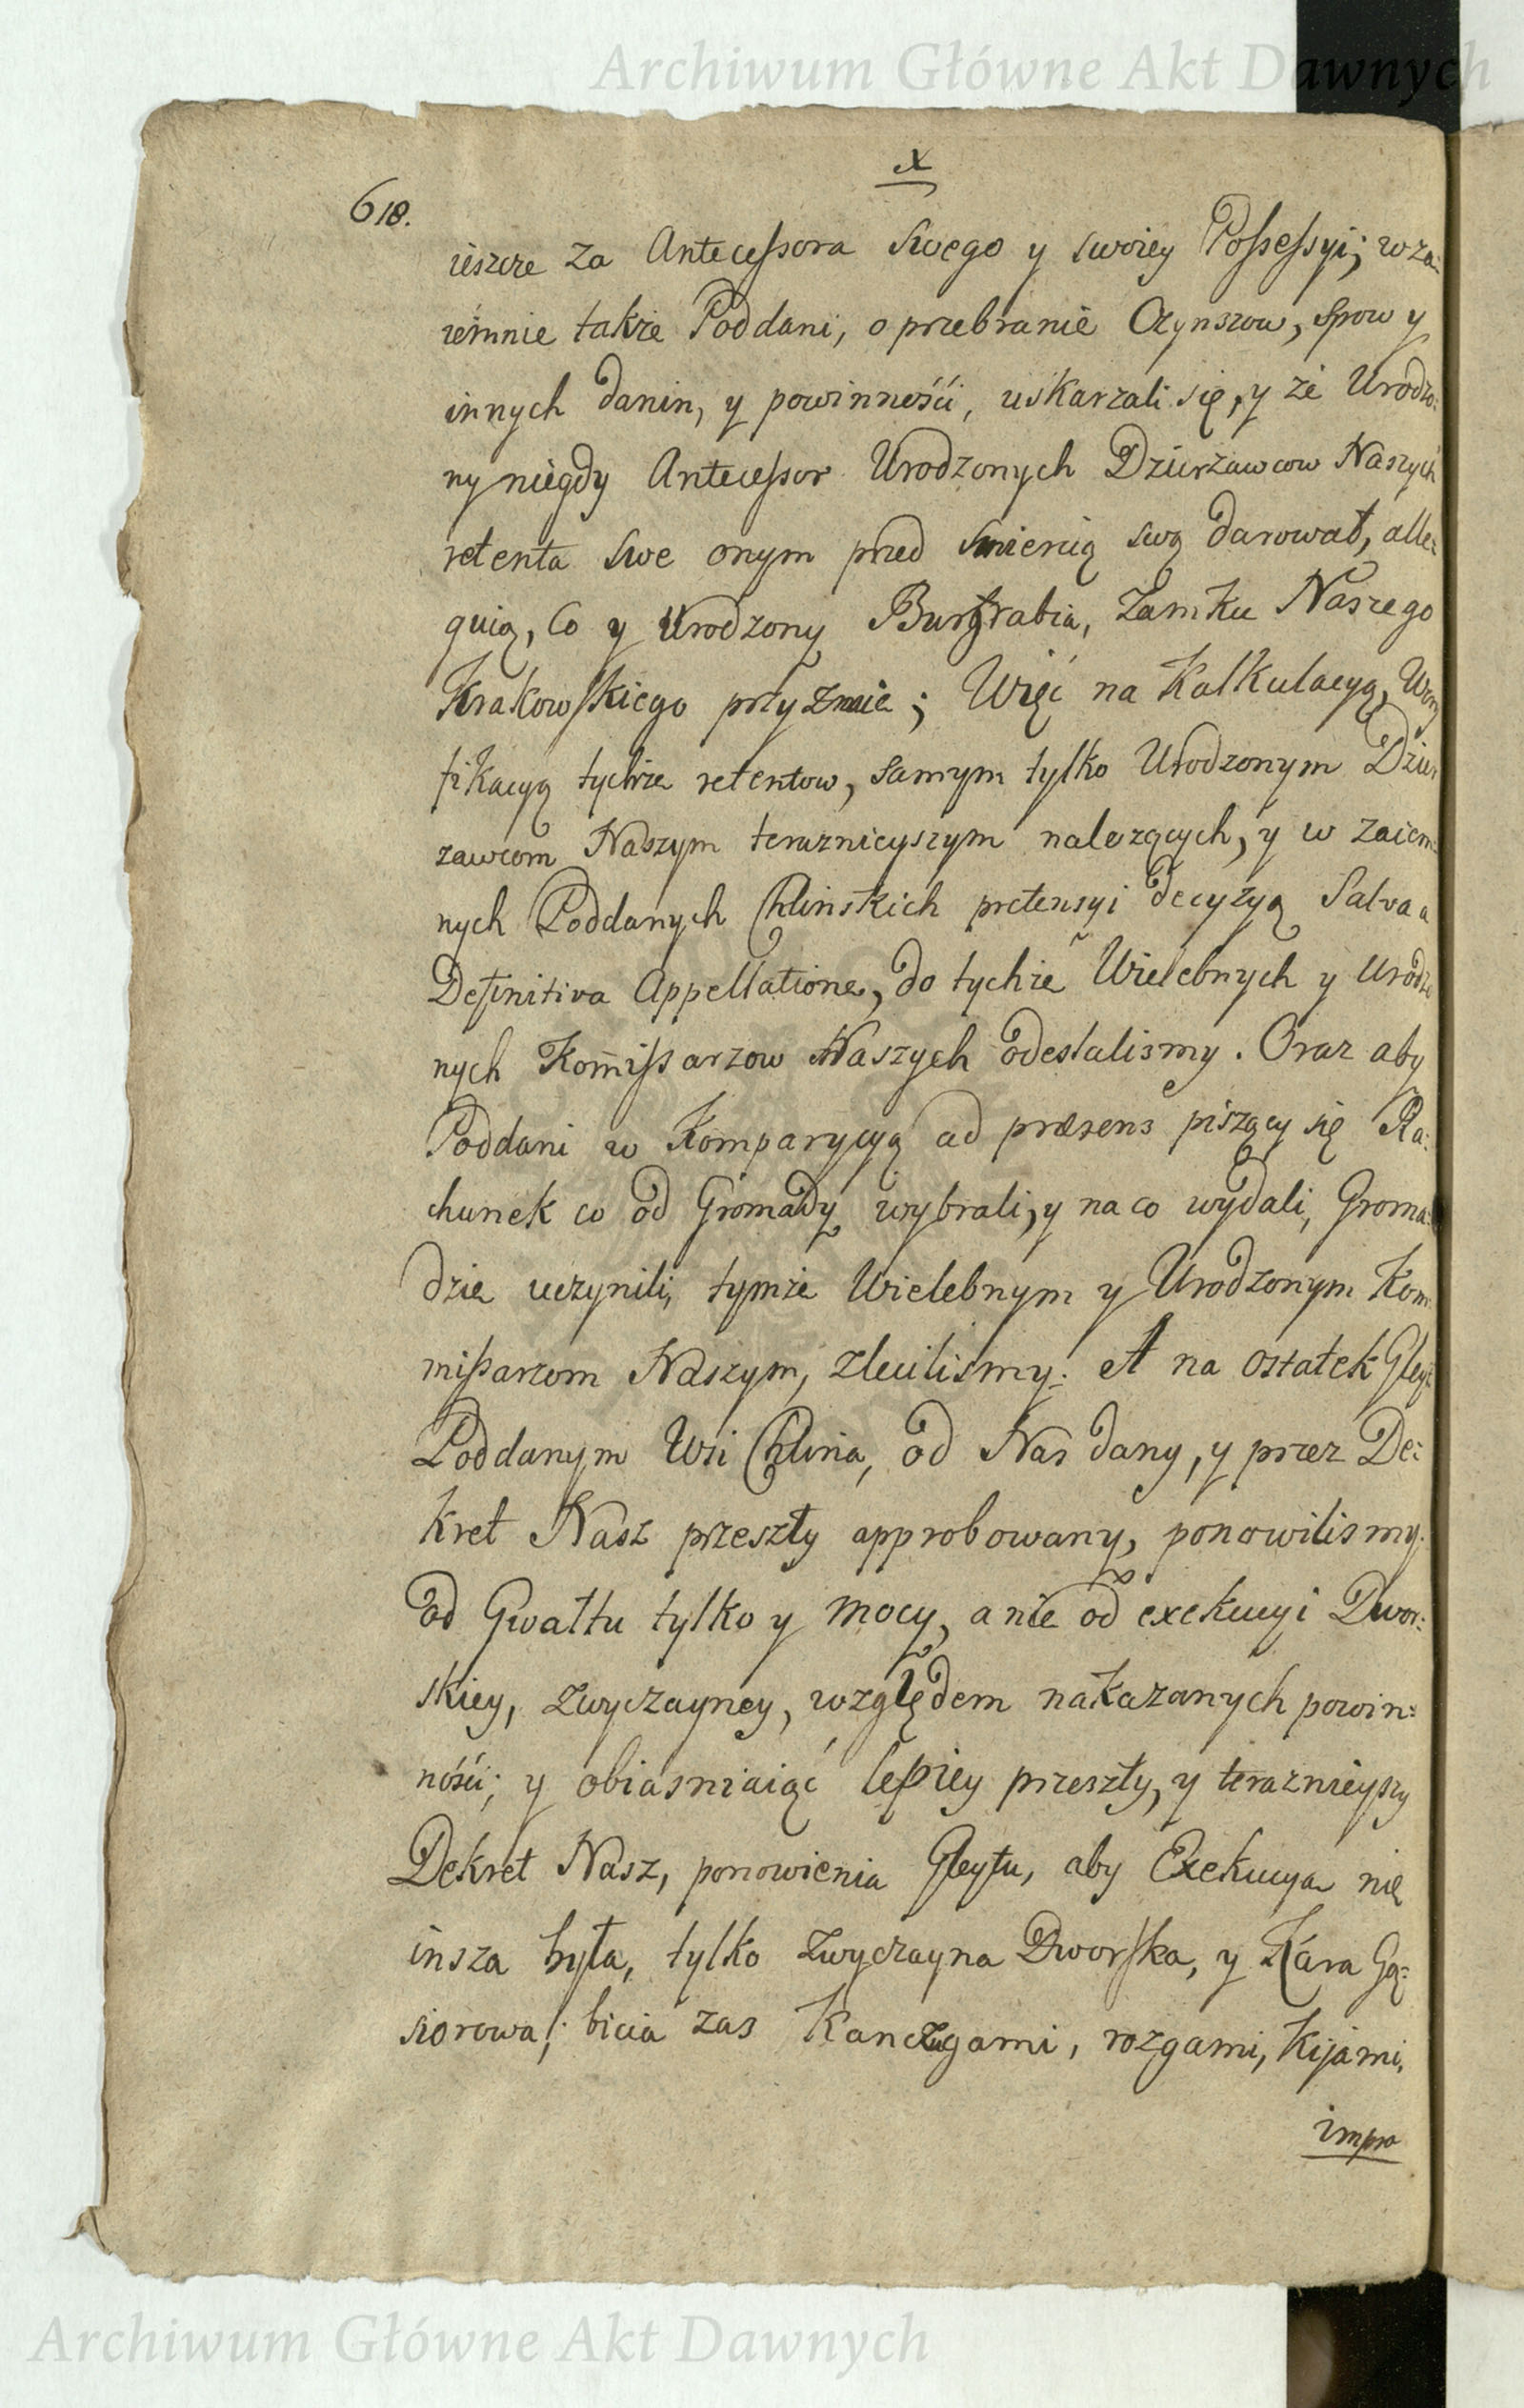 Archiwum Główne Akt Dawnych
X
618.
ieszcze za Antecessora swego y swoiey Possessyi; wza-
iemnie także Poddani, o przebranie Czynszow, spow y
innych danin, y powinności, uskarzali się, y że Urodzo:
ny niegdy Antecessor Urodzonych Dzierżawcow Naszych
retenta swe onym przed śmiercią swą darował, alle:
guią, Co y Urodzony Burgrabia, Zamku Naszego
Krakowskiego przyznaie; Więc na Kalkulacyą, Wery
fikacyą tychże retentow, samym tylko Urodzonym Dzier
zawcom Naszym teraznieyszym należących, y w zaiem:
nych Poddanych Chlińskich pretensyi decyzyą Salva a
Definitiva Appellatione, do tychże Wielebnych y Urodzo
nych Kom̃issarzow Naszych odesłalismy. Oraz aby
Poddani w Komparycyą ad præsens piszący się Ra:
chunek co od Gromady wybrali, y na co wydali, Groma:
dzie uczynili, tymże Wielebnym y Urodzonym Kom:
missarzom Naszym, zleciliśmy. A na ostatek Gleyt
Poddanym Wsi Chlina, od Nas dany, y przez De:
kret Nasz przeszły approbowany, ponowilismy.
od Gwałtu tylko y mocy, a nie od exekucyi Dwor:
skiey, zwyczayney, względem nakazanych powin:
ności; y obiasniaiąc lepiey przeszły, y teraznieyszy
Dekret Nasz, ponowienia Gleytu, aby Exekucya nie
insza była, tylko zwyczayna Dworska, y Kara Gą:
siorowa; bicia zas Kanczugami, rozgami, Kijami,
impro
Archiwum Główne Akt Dawnych